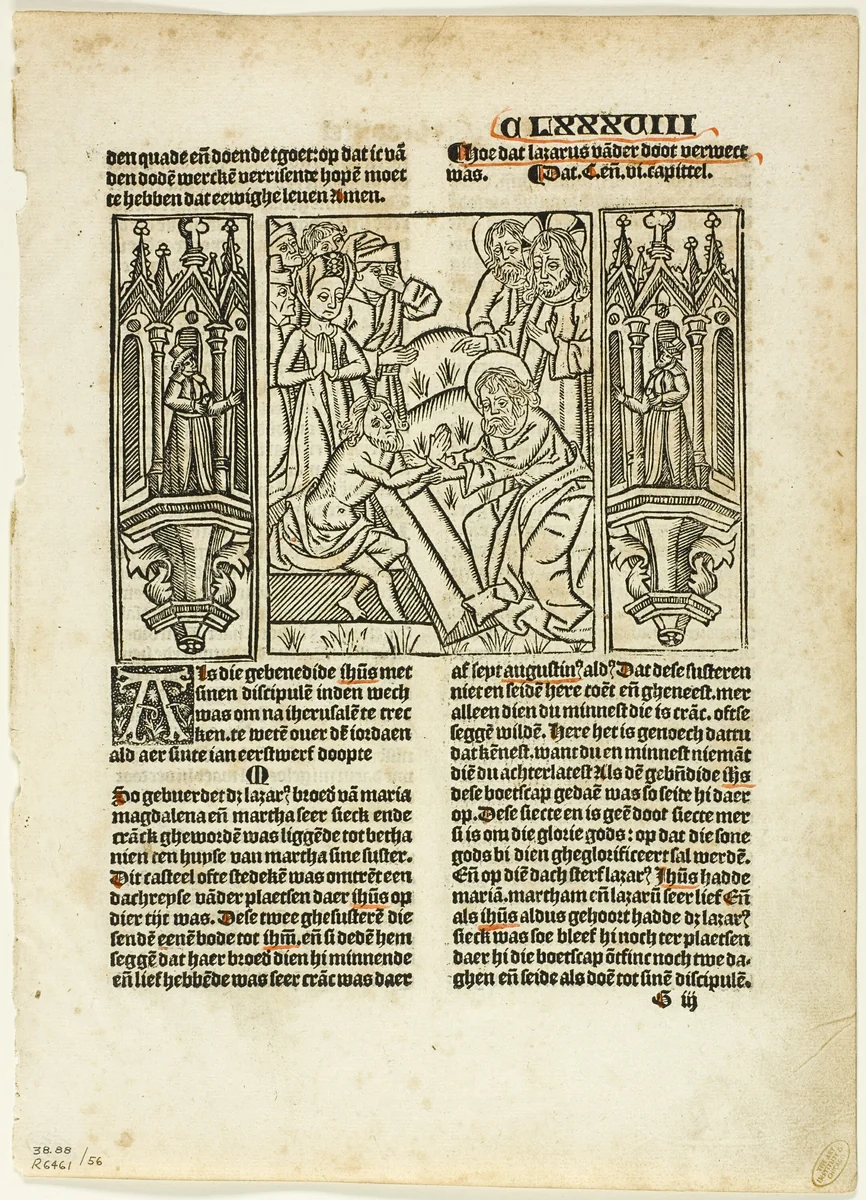 C LXXXVIII
den quade eñ doende tgoet: op dat ic vā
den dodē werckē verrisende hopē moet
te hebben dat eewighe leuen Amen.
¶hoe dat lazarus vāder doot verwect
was. ¶Dat. C. eñ. vi. capittel.
AIs die gebenedide ihūs met
sinen discipulē inden wech
was om na iherusalē te trec
ken. te wetē ouer dē iordaen
ald aer sinte ian eerstwerf doopte
M
So gebuerdet dꝫ lazarꝰ broed vā maria
magdalena eñ martha seer sieck ende
crāck ghewordē was liggēde tot betha
nien een huyse van martha sine suster.
Dit casteel ofte stedekē was omtrēt een
dachreyse vāder plaetsen daer ihūs op
dier tijt was. Dese twee ghesusterē die
sendē eenē bode tot ihm̄. eñ si dedē hem
seggē dat haer broed dien hi minnende
eñ lief hebbēde was seer crāc was daer
af sept augustinꝰ aldꝰ Dat dese susteren
niet en seidē here coēt eñ gheneest. mer
alleen dien du minnest die is crāc. oftse
seggē wildē. Here het is genoech dattu
dat kēnest. want du en minnest niemāt
diē du achterlatest Als dē gebn̄dide ihs̄
dese boetscap gedaē was so seide hi daer
op. Dese siecte en is geē doot siecte mer
si is om die glorie gods: op dat die sone
gods bi dien gheglorificeert sal werdē.
Eñ op diē dach sterf lazarꝰ Ihūs hadde
mariā. martham eñ lazarū seer lief Eñ
als ihūs aldus gehoort hadde dꝫ lazarꝰ
sieck was soe bleef hi noch ter plaetsen
daer hi die boetscap ōtfinc noch twe da-
ghen eñ seide als doē tot sinē discipulē.
G iij
38.88
R6461 /56
THE ART
INSTITUTE